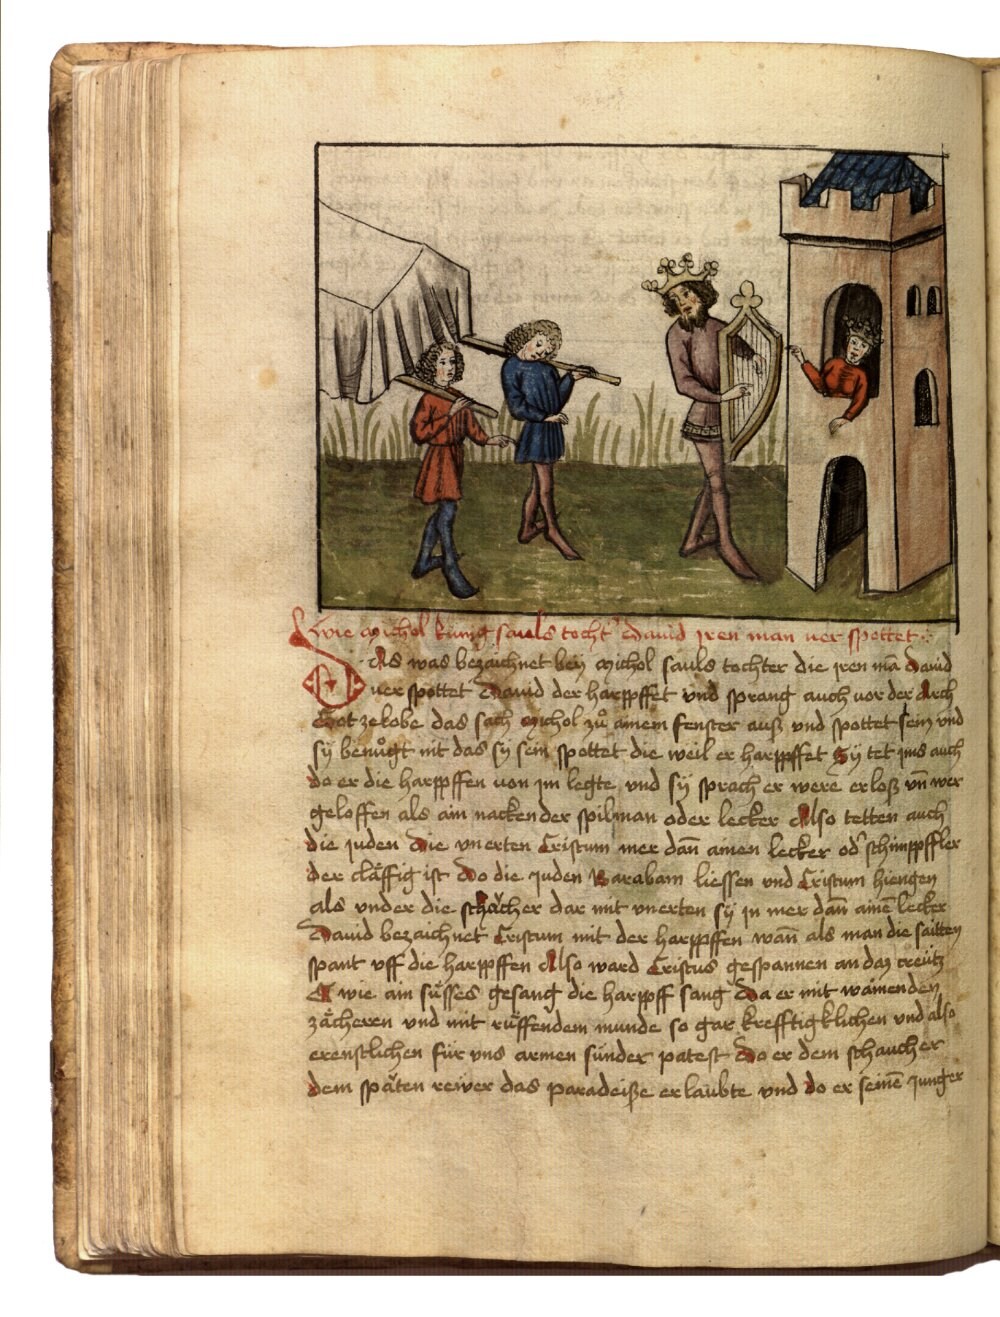 Wie Michol kunig sauls tocht' Dauid iren man ver spottet
Das was bezaichnet bey Michol sauls tochter die iren mā Dauid
ver spottet Dauid der harpffet vnd sprang auch vor der Arch
Got ze lobe das sach Michol zů ainem fenster auß vnd spottet sein vnd
sÿ benůgt nit das sÿ sein spottet die weil er harpffet Sÿ tet ims auch
do er die harpffen von im legte vnd sÿ sprach er were er loß vn̄ wer
geloffen als ain nackender spilman oder lecker Also tetten auch
die juden die vnerten Cristum mer dan̄ ainen lecker od' schimpffler
der cläffig ist Do die juden Barabam liessen vnd Cristum hiengen
als vnder die schächer dar mit vnerten sÿ in mer dan̄ ainē lecker
Dauid bezaichnet Cristum mit der harpffen wan̄ als man die saitten
spant vff die harpffen Also ward Cristus gespannen an daz creütz
wie ain süsses gesang die harpff sang Da er mit wainenden
zächeren vnd mit rüffendem munde so gar krefftigklichen vnd also
erenstlichen für vns armen sünder patest Do er dem schaucher
dem späten rewer das paradeiße er laubte vnd do er seinē junger